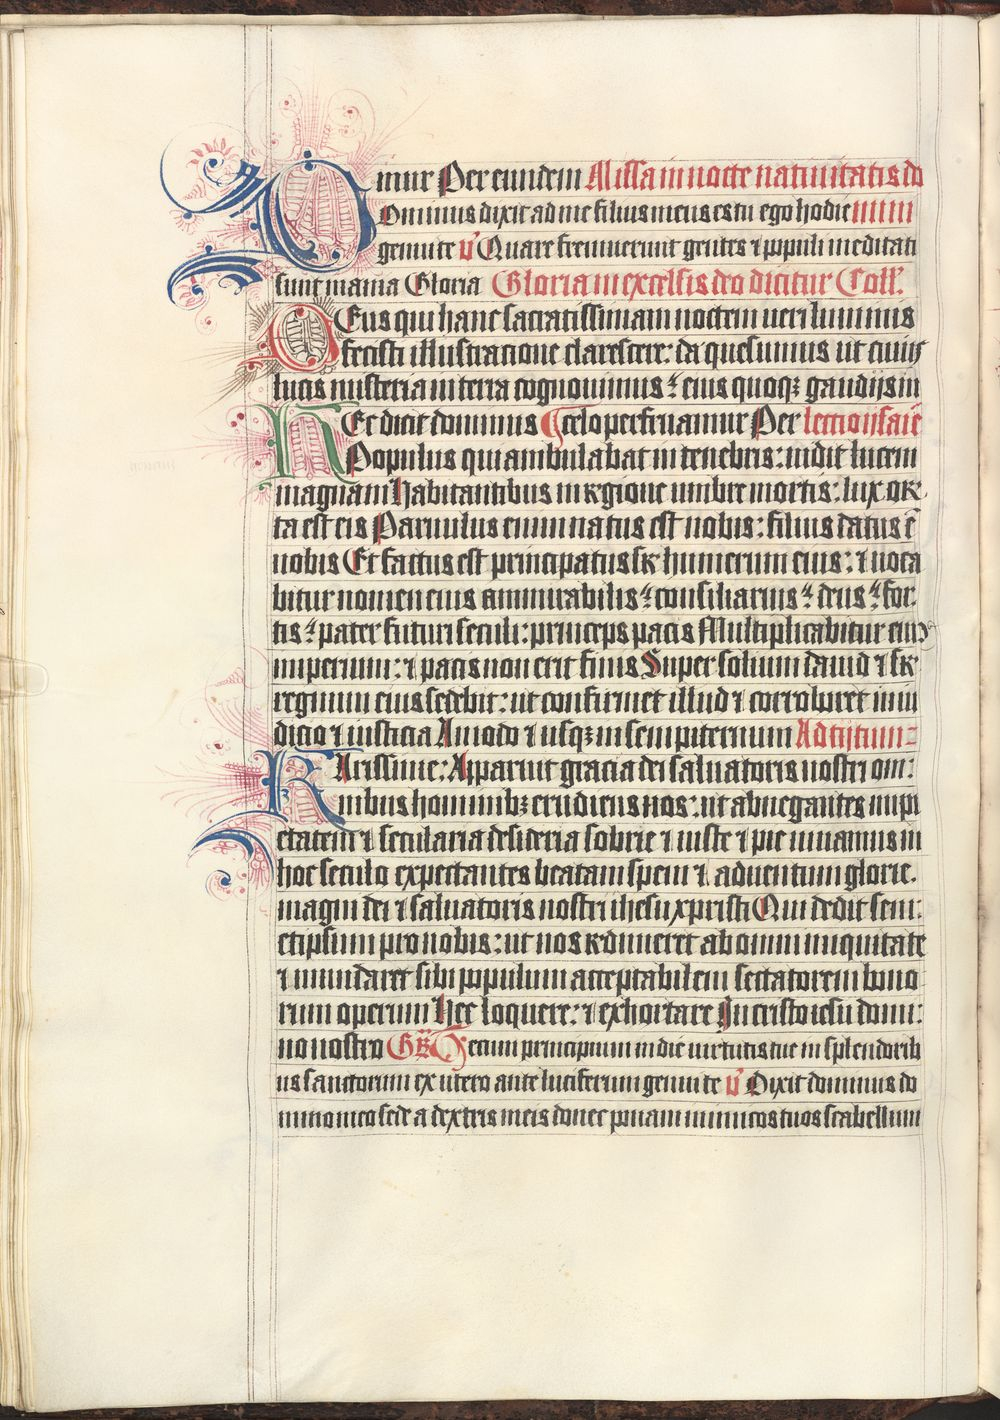 mur Per eundem Missa in nocte natiuitatis do
Dominus dixit ad me filius meus es tu ego hodie mini
genui te v̕ Quare fremuerunt gentes ⁊ populi meditati
sunt inania Gloria Gloria in excelsis deo dicitur Coll̕.
DEus qui hanc sacratissimam noctem ueri luminis
fecisti illustracione clarescere: da quesumus ut cuiꝰ
lucis misteria in terra cognouimus: eius quoqꝫ gaudijs in
HEc dicit dominus celo perfruamur Per lectio ysaie
Populus qui ambulabat in tenebris: uidit lucem
magnam Habitantibus in regione umbre mortis: lux or
ta est eis Paruulus enim natus est nobis: filius datus ē
nobis Et factus est principatus sr humerum eius: ⁊ uoca
bitur nomen eius ammirabilis: consiliarius: deus: for
tis: pater futuri seculi: princeps pacis Multiplicabitur eiꝰ
imperium: ⁊ pacis non erit finis Super solium dauid ⁊ sr
regnum eius sedebit: ut confirmet illud ⁊ corroboret in iu
dicio ⁊ iusticia Amodo ⁊ usqꝫ in sempiternum Ad tijtum
KArissime: Apparuit gracia dei saluatoris nostri om
nibus hominibꝫ erudiens nos: ut abnegantes impi
etatem ⁊ secularia desideria sobrie ⁊ iuste ⁊ pie uiuamus in
hoc seculo expectantes beatam spem ⁊ aduentum glorie.
magni dei ⁊ saluatoris nostri ihesu xpristi Qui dedit sem
etipsum pro nobis: ut nos redimeret ab omni iniquitate
⁊ mundaret sibi populum acceptabilem sectatorem bono
rum operum Hec loquere: ⁊ exhortare In cristo iesu domi
no nostro GR̄ Tecum principium in die uirtutis tue in splendorib
us sanctorum ex utero ante luciferum genui te v̕ Dixit dominus do
mino meo sede a dextris meis donec ponam inimicos tuos scabellum